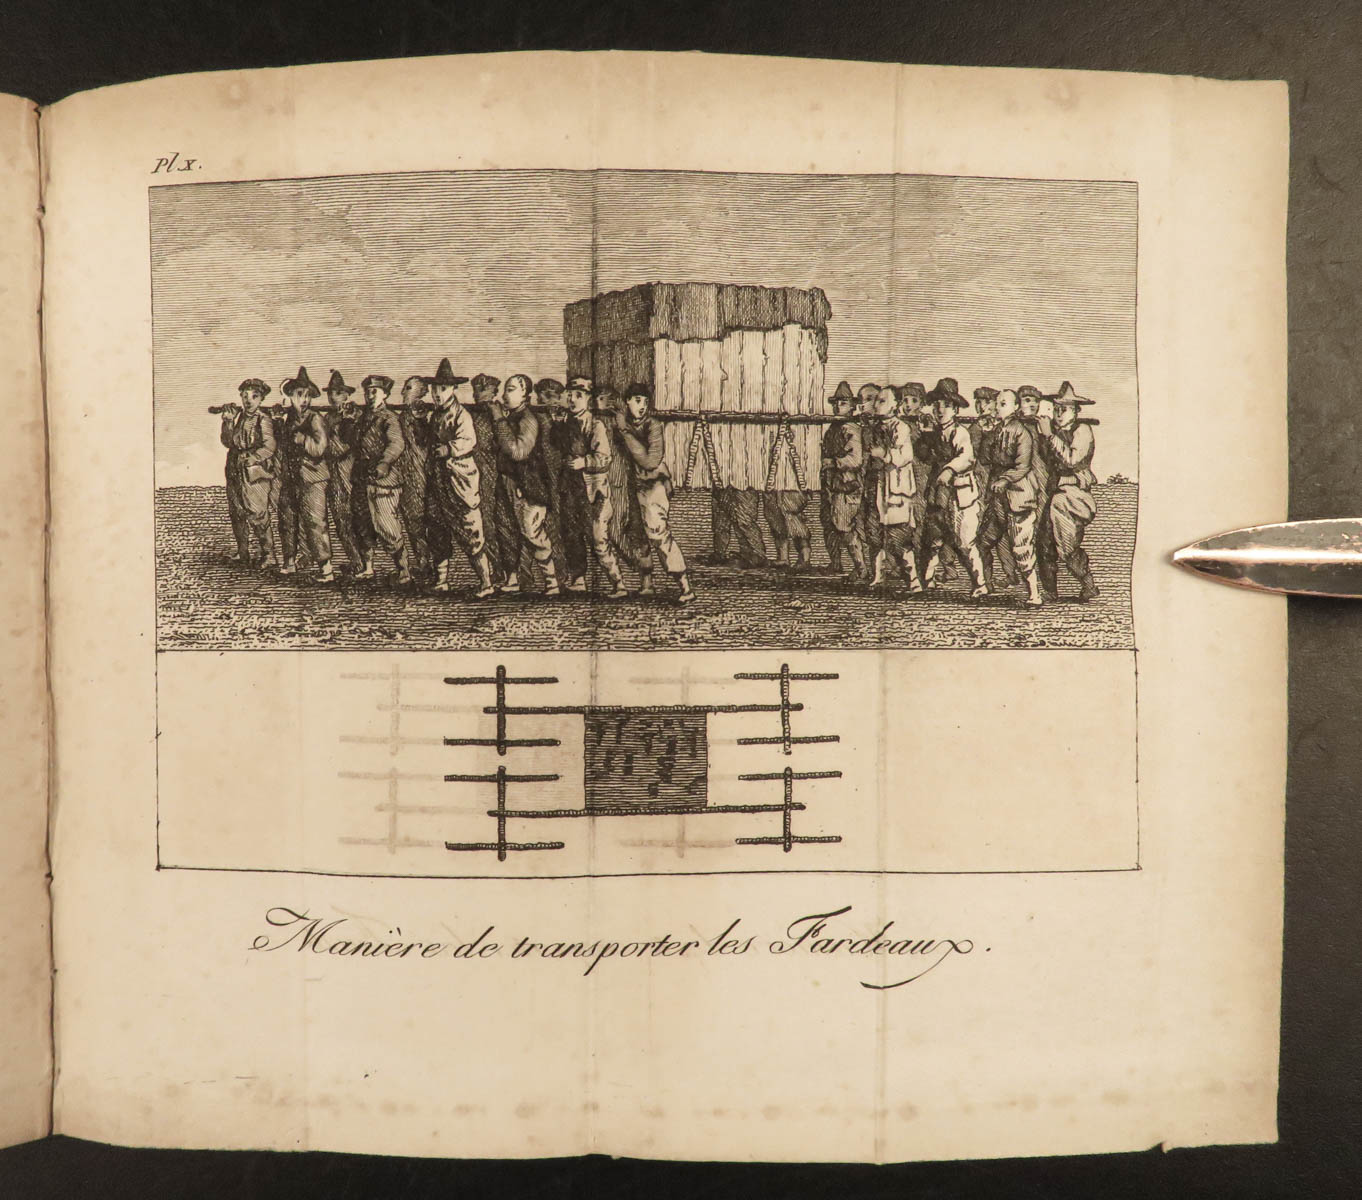 Pl. x.
Manière de transporter les Fardeaux.